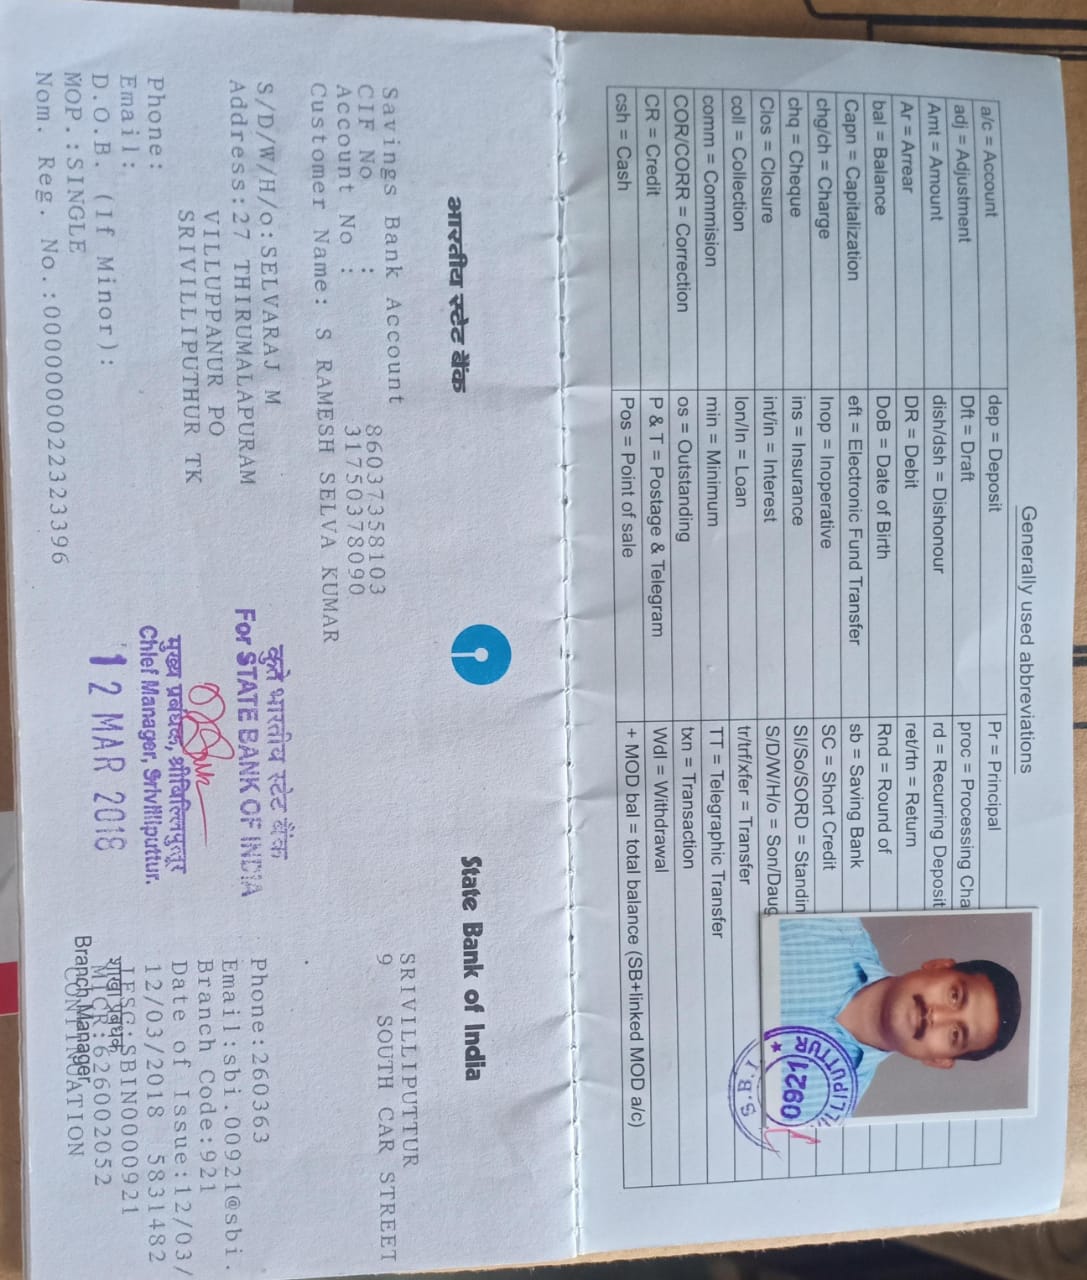 Generally used abbreviations
a/c = Account	dep = Deposit	Pr = Principal
adj = Adjustment	Dft = Draft	proc = Processing Cha
Amt = Amount	dish/dsh = Dishonour	rd = Recurring Deposit
Ar = Arrear	DR = Debit	ret/rtn = Return
bal = Balance	DoB = Date of Birth	Rnd = Round of
Capn = Capitalization	eft = Electronic Fund Transfer	sb = Saving Bank
chg/ch = Charge	Inop = Inoperative	SC = Short Credit
chq = Cheque	ins = Insurance	SI/So/SORD = Standin
Clos = Closure	int/in = Interest	S/D/W/H/o = Son/Daug
coll = Collection	lon/ln = Loan	tr/trf/xfer = Transfer
comm = Commision	min = Minimum	TT = Telegraphic Transfer
COR/CORR = Correction	os = Outstanding	txn = Transaction
CR = Credit	P & T = Postage & Telegram	Wdl = Withdrawal
csh = Cash	Pos = Point of sale	+ MOD bal = total balance (SB+linked MOD a/c)
0921
S.B.I
भारतीय स्टेट बैंक
State Bank of India
Savings Bank Account
CIF No : 86037358103
Account No : 31750378090
Customer Name: S RAMESH SELVA KUMAR
S/D/W/H/o:SELVARAJ M
Address:27 THIRUMALAPURAM
VILLUPPANUR PO
SRIVILLIPUTHUR TK
Phone:
Email:
D.O.B. (If Minor):
MOP.:SINGLE
Nom. Reg. No.:0000000022323396
कृते भारतीय स्टेट बैंक
For STATE BANK OF INDIA
मुख्य प्रबंधक, श्रीविल्लिपुत्तूर
Chief Manager, Srivilliputtur.
12 MAR 2018
SRIVILLIPUTTUR
9 SOUTH CAR STREET
Phone:260363
Email:sbi.00921@sbi.
Branch Code:921
Date of Issue:12/03/
12/03/2018 5831482
IFSC:SBIN0000921
MICR:626002052
CONTINUATION
शाखा प्रबंधक
Branch Manager